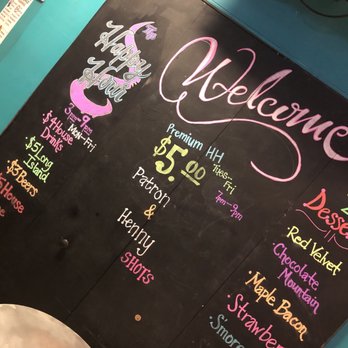 The
Happy
Hour
3pm-7pm
Mon-Fri
$4 House
Drinks
$5 Long
Island
$5 Beers
$5 House
Welcome
Premium HH
$5.00
Tues-Fri
4pm-9pm
Patron
&
Henny
SHOTS
Red Velvet
Chocolate
Mountain
Maple Bacon